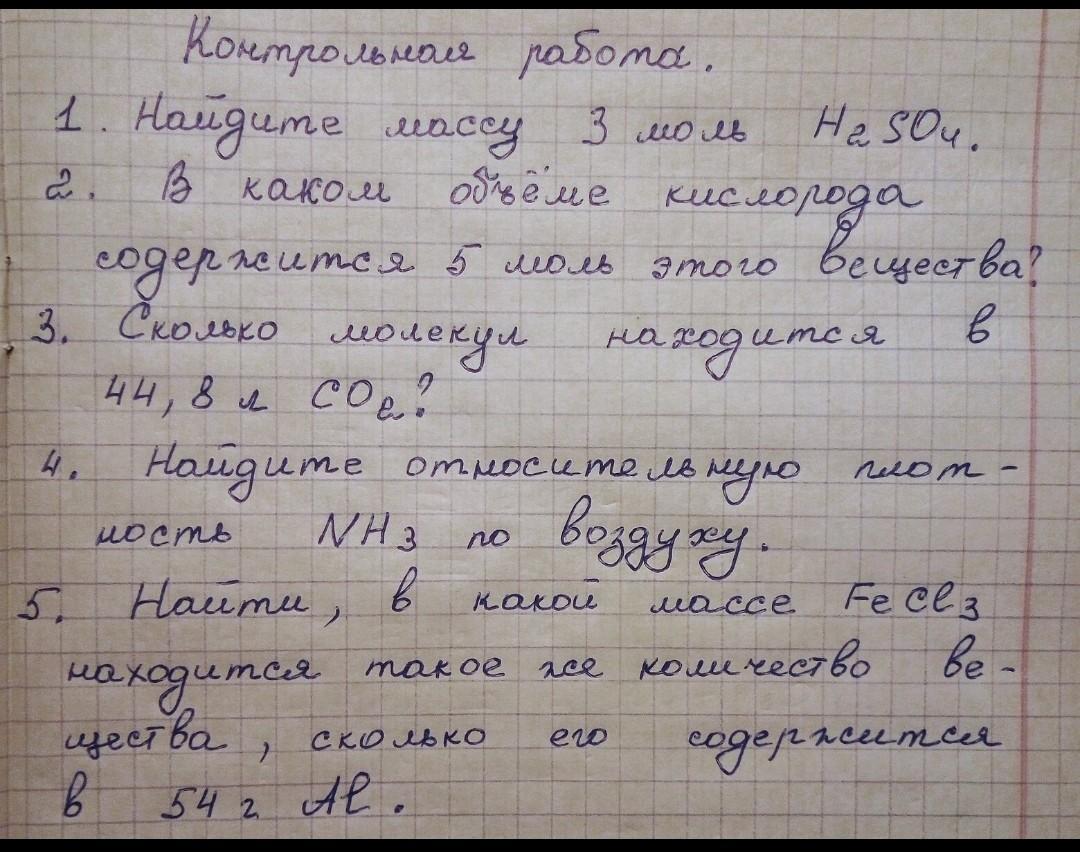 Контрольная работа.
1. Найдите массу 3 моль H₂SO₄.
2. В каком объёме кислорода
содержится 5 моль этого вещества?
3. Сколько молекул находится в
44,8 л CO₂?
4. Найдите относительную плот-
ность NH₃ по воздуху.
5. Найти, в какой массе FeCl₃
находится такое же количество ве-
щества, сколько его содержится
в 54 г Al.